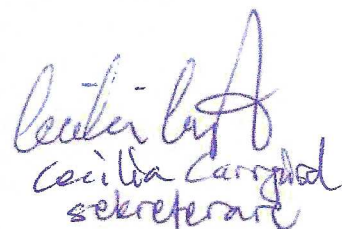 Cecilia Carrgård
sekreterare